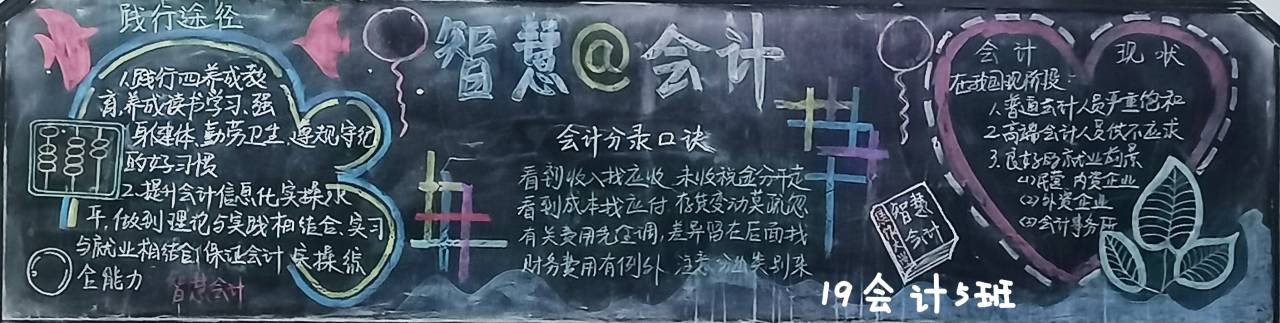 践行途径
1.践行四养成教
育,养成读书学习、强
身健体、勤劳卫生、遵规守纪
的好习惯
2.提升会计信息化实操水
平,做到理论与实践相结合、实习
与就业相结合保证会计实操综
合能力
智慧会计
智慧@会计
会计分录口诀
看到收入找应收,未收税金分开走
看到成本找应付,存货变动莫疏忽
有关费用先全调,差异留在后面找
财务费用有例外,注意分出类别来
智慧
会计
会计 现状
在我国现阶段:
1.普通会计人员严重饱和
2.高端会计人员供不应求
3.良好的就业前景
(1)民营、内资企业
(2)外资企业
(3)会计事务所
19会计5班